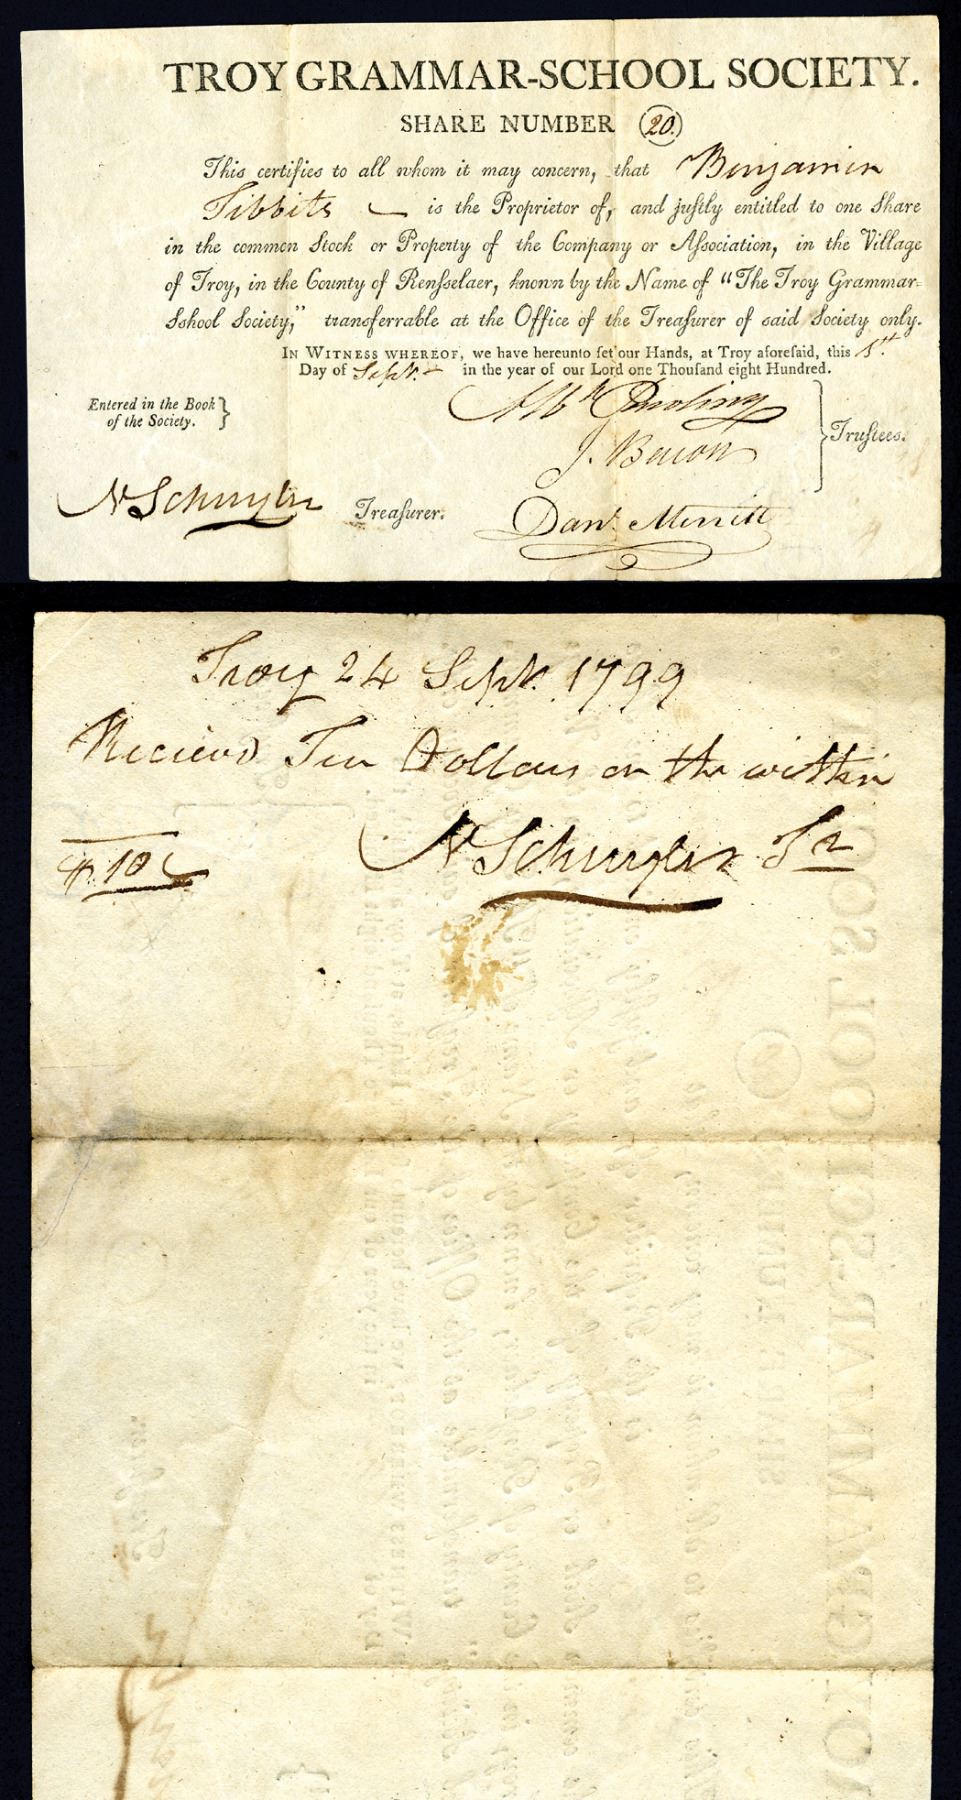 TROY GRAMMAR-SCHOOL SOCIETY.
SHARE NUMBER 20.
This certifies to all whom it may concern, that Benjamin
Tibbits is the Proprietor of, and juſtly entitled to one Share
in the common Stock or Property of the Company or Aſſociation, in the Village
of Troy, in the County of Renſſelaer, known by the Name of "The Troy Grammar-
Sshool Society," transferrable at the Office of the Treaſurer of said Society only.
IN WITNESS WHEREOF, we have hereunto ſet our Hands, at Troy aforeſaid, this 1st.
Day of Sept. in the year of our Lord one Thouſand eight Hundred.
Entered in the Book
of the Society. }
J. Bacon
Truſtees.
N Schuyler Treaſurer.
Danl. Merritt
Troy 24 Sept. 1799
Recieved Ten Dollars on the within
N Schuyler Tr
$ 10